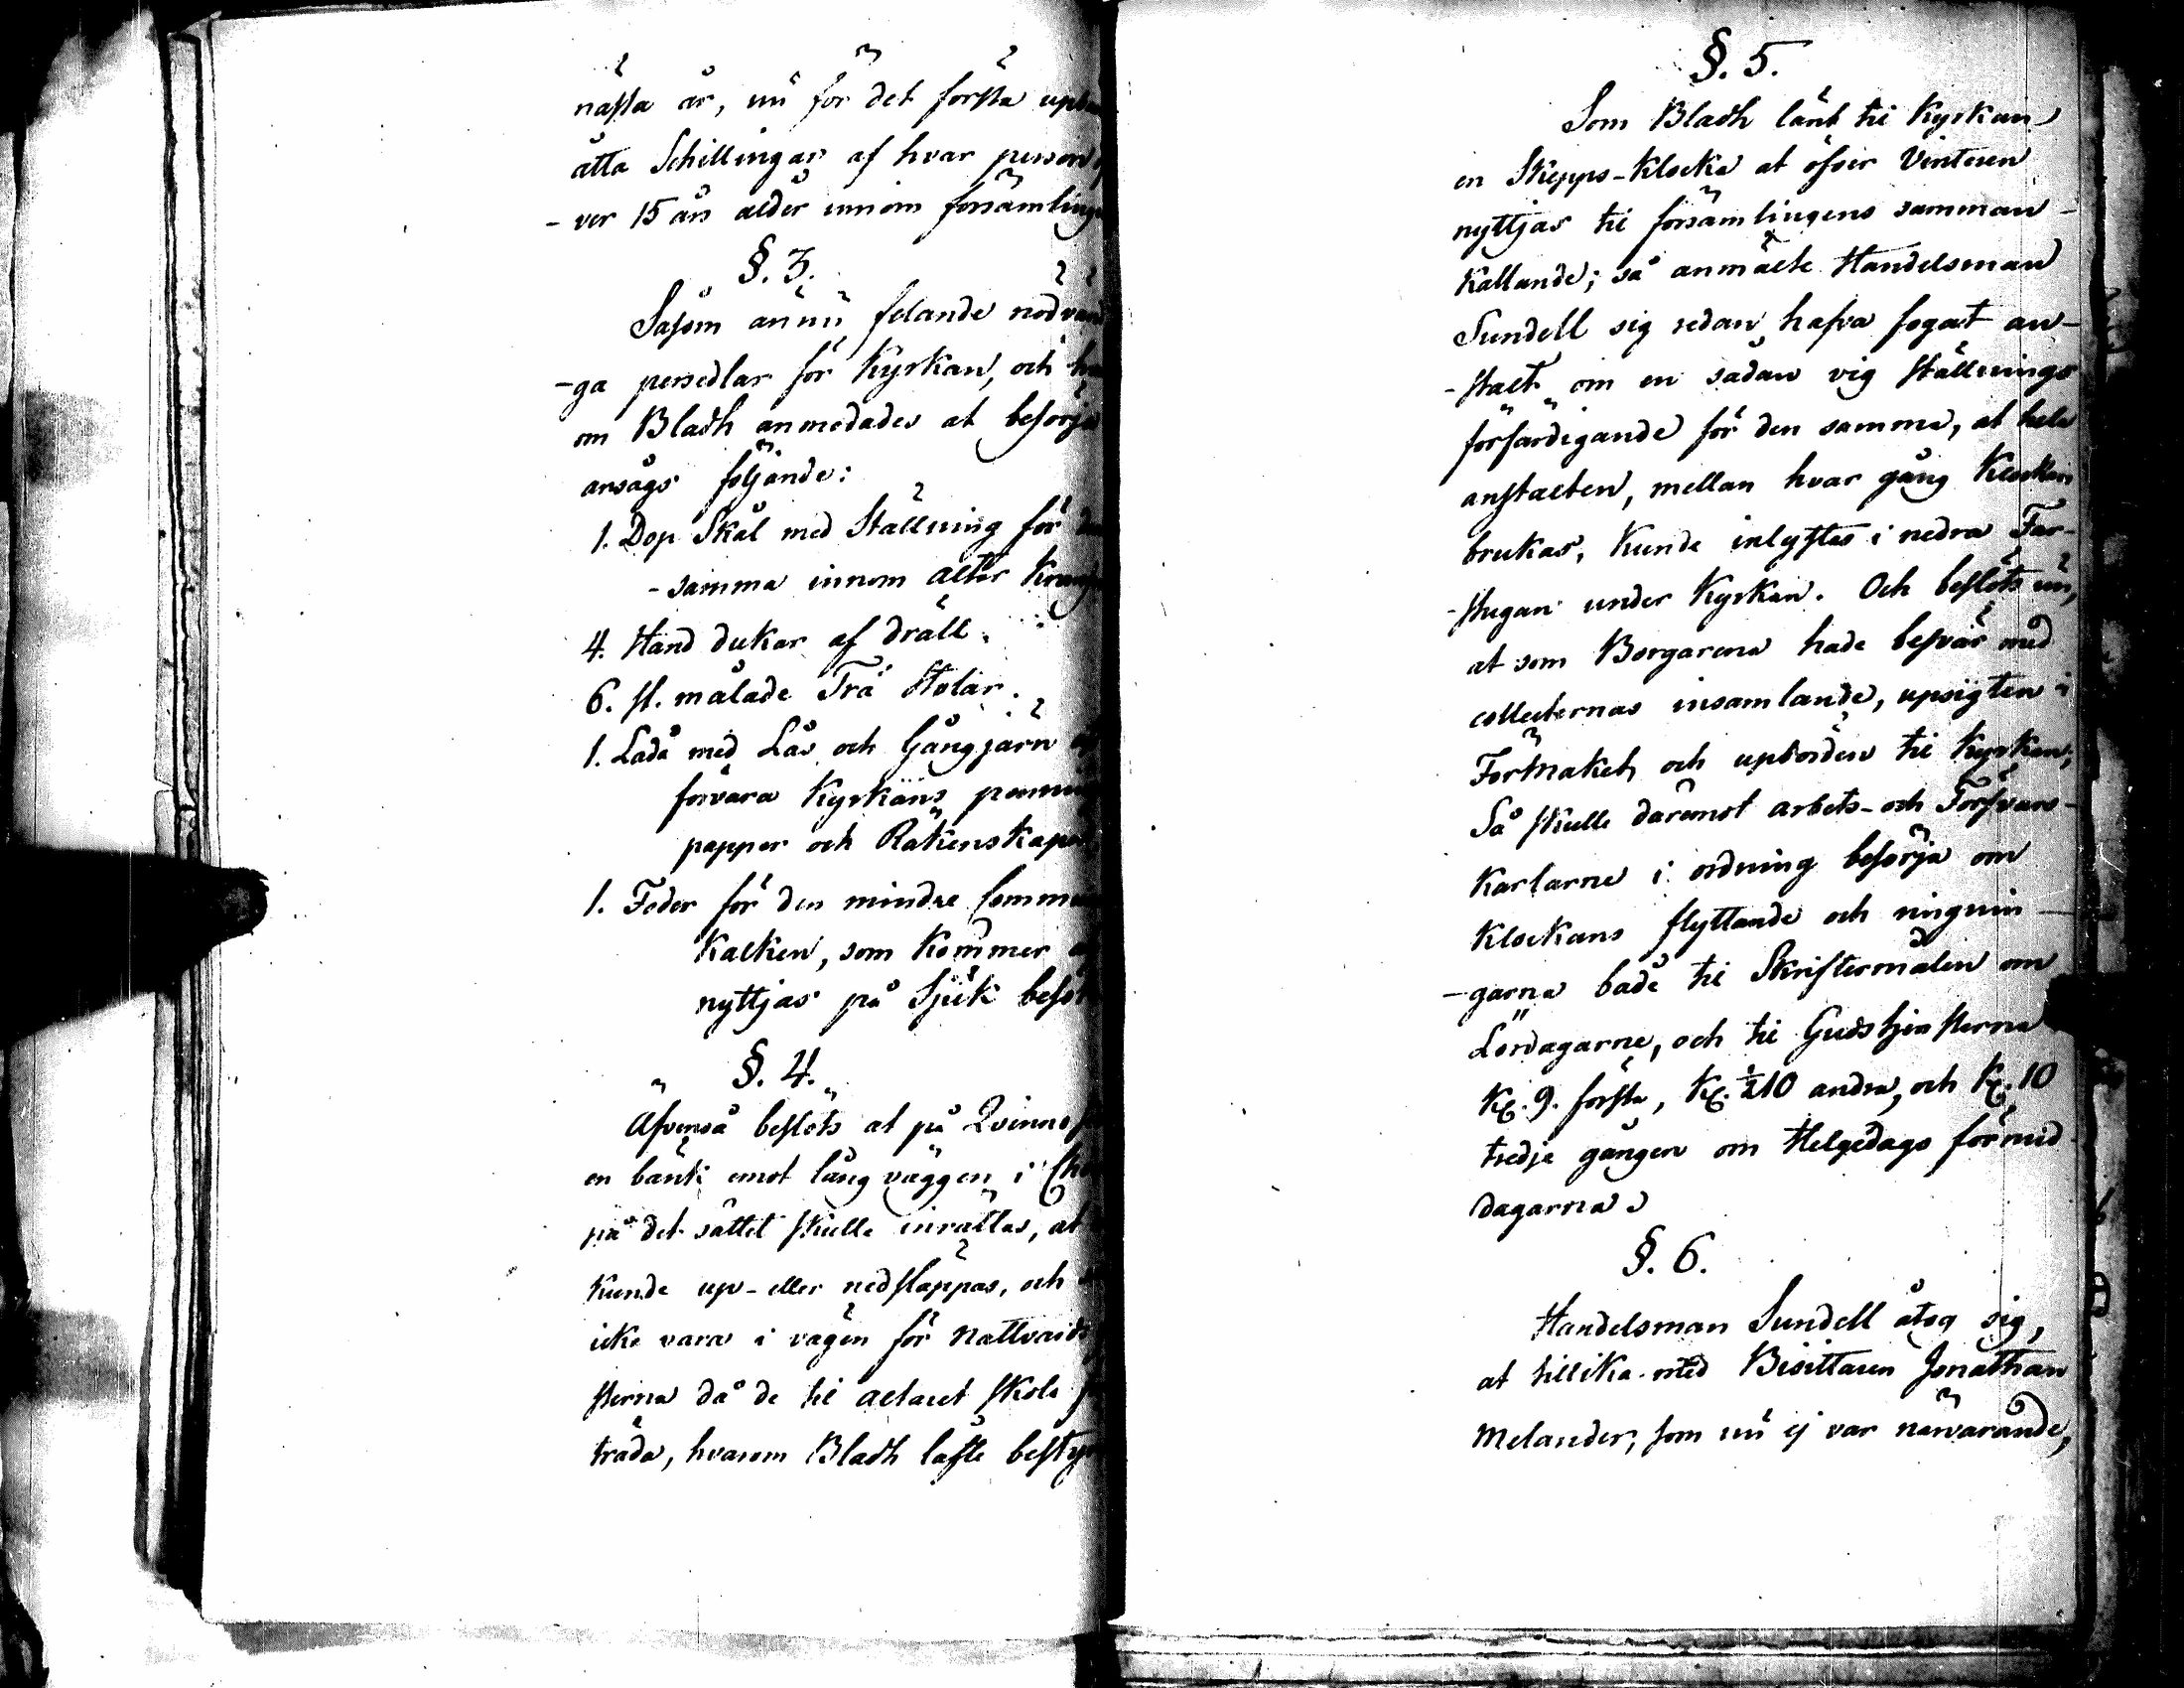 nästa år, nu för det första
åtta Schillingar af hvar person
- ver 15 års ålder innom församling
§. 3.
Såsom ännu felande nödvän
-ga persedlar för Kyrkan, och
om Bladh anmodades at besörja
ansågs följande:
1. Dop Skål med Ställning för
- samma innom altar
4. Hand dukar af dräll.
6. st. målade Trä Stolar.
1. Låda med Lås och Gångjärn
förvara Kyrkans penning
papper och Räkenskaper
1. Foder för den mindre Commu
Kalken, som Kommer
nyttjas på Sjuk besök
§. 4.
Äfvenså beslöts at på Qvinno
en bänk emot lång väggen i Cho
på det sättet skulle inrättas, at
Kunde up- eller nedsläppas, och
icke vara i vägen för Nattvards
sterna då de til altaret skola
träda, hvarom Bladh låfte besty
§. 5.
Som Bladh länt til Kyrkan
en Skepps-Klocka at öfver Vinteren
nyttjas til församlingens samman-
Kallande; så anmälte Handelsman
Sundell sig redan hafva fogat an-
-stalt om en sådan vig ställnings
förfärdigande för den samma, at hela
anstalten, mellan hvar gång Klockan
brukas, Kunde inlyftas i nedra Far-
-stugan under Kyrkan. Och beslöts nu,
at som Borgarena hade besvär med
collecternas insamlande, upsigten i
Förmaket, och upbörden til Kyrkan;
Så skulle däremot arbets- och Försvars-
Karlarne i ordning besörja om
Klockans flyttande och ringnin-
-garna både til Skriftermålen om
Lördagarne, och til Gudstjensterna
Kl. 9. första, Kl. ½10 andra, och Kl. 10
tredje gången om Helgedags förmid
dagarna.
§. 6.
Handelsman Sundell åtog sig,
at tillika med Bisittaren Jonathan
Melander, som nu ej var närvarande,